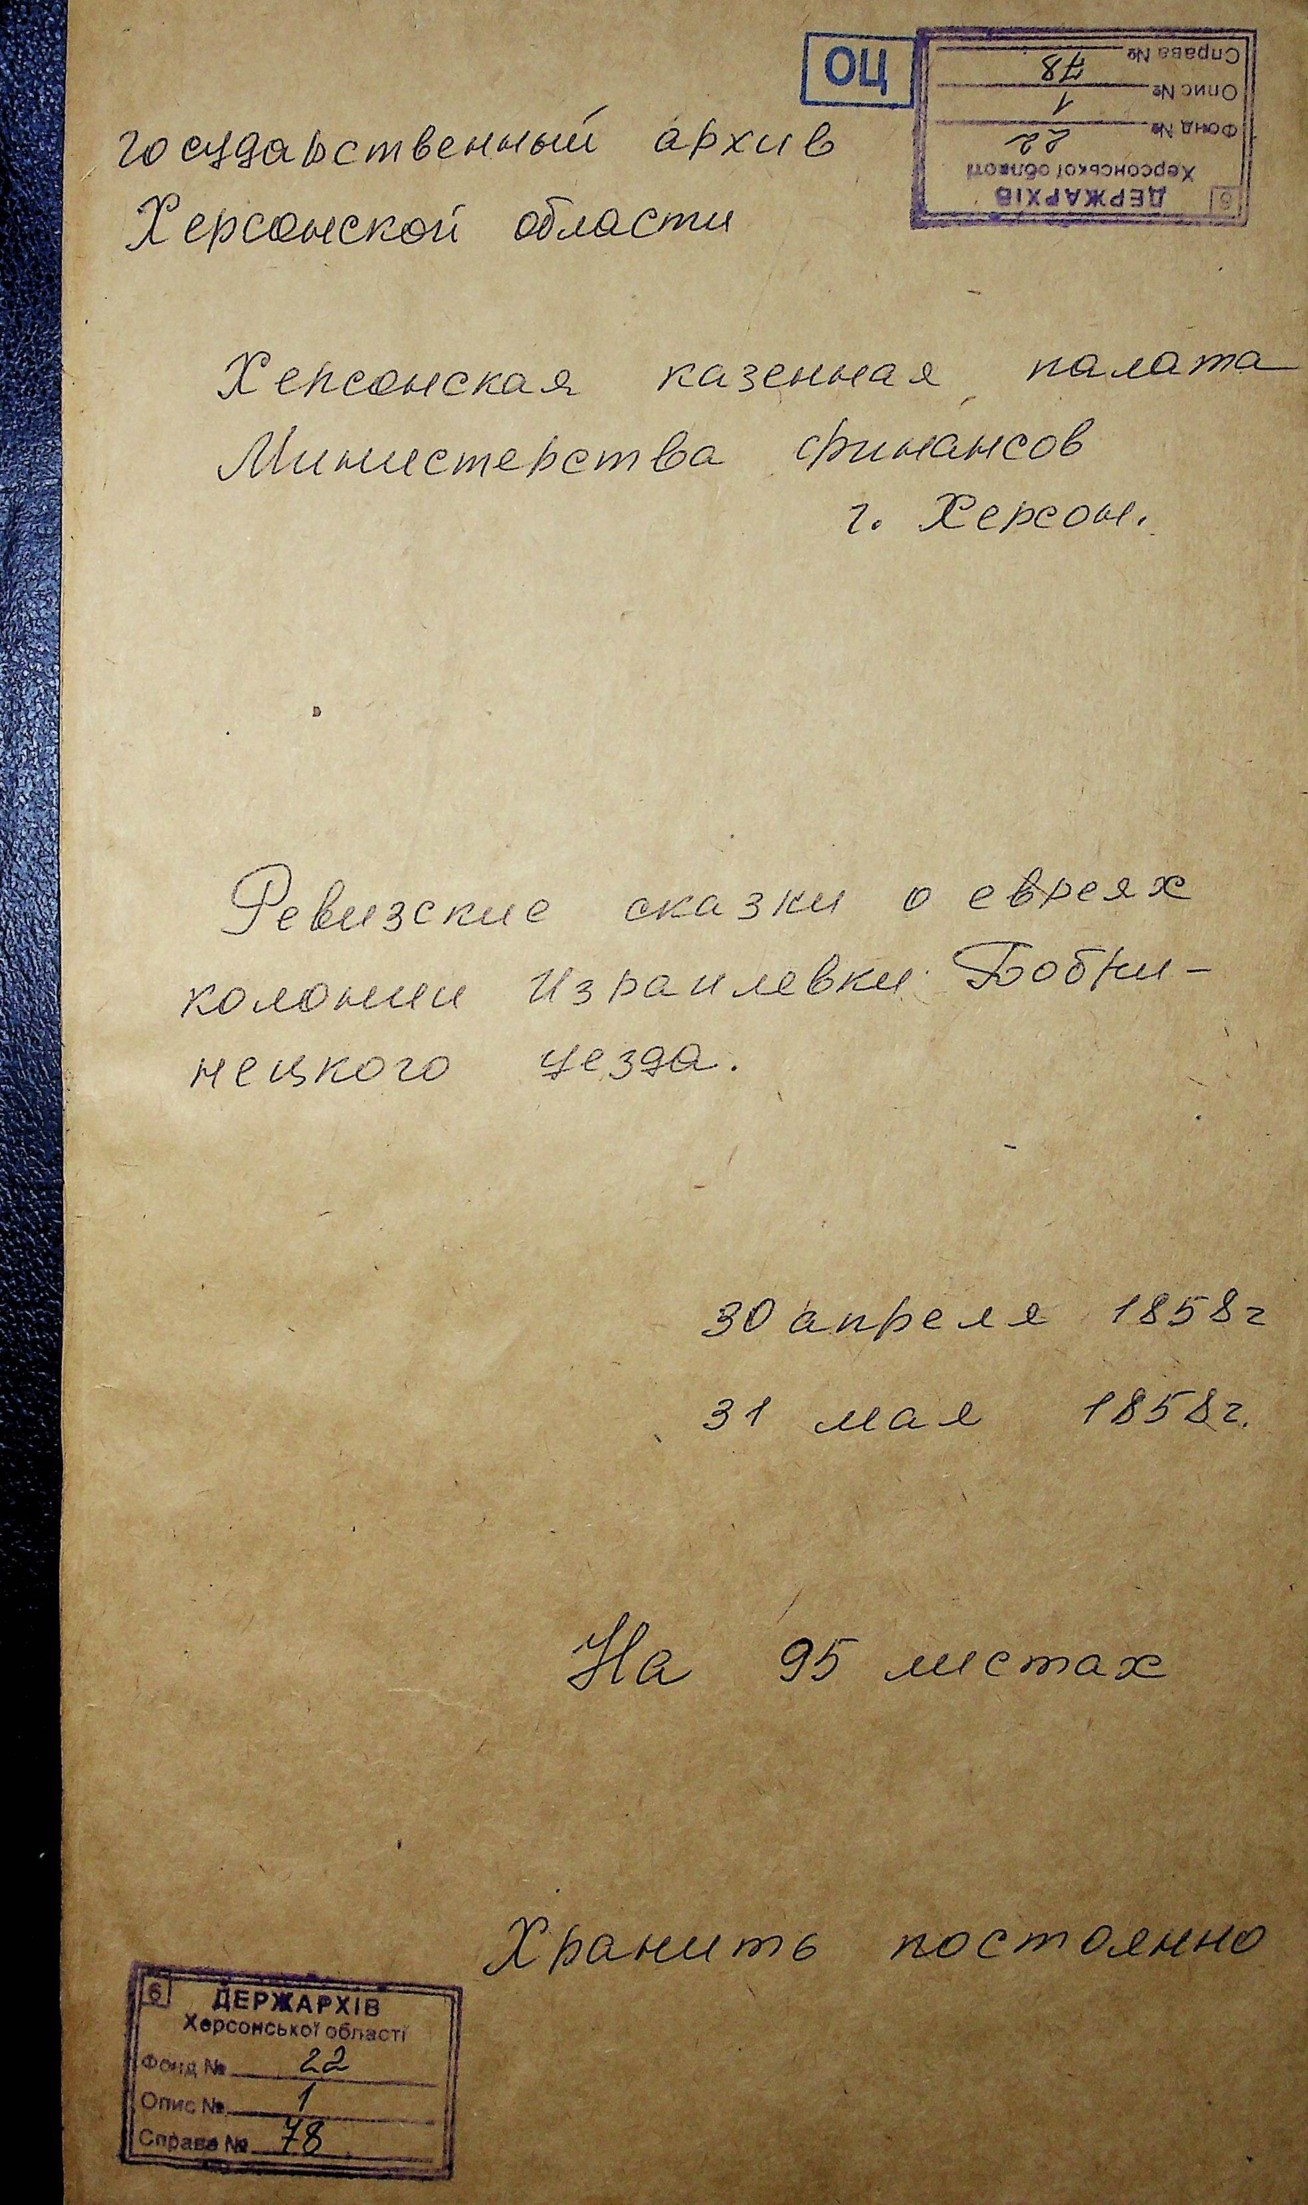 ОЦ
6 ДЕРЖАРХІВ
Херсонської області
Фонд № 22
Опис № 1
Справа № 78
государственный архив
Херсонской области
Херсонская казенная палата
Министерства финансов
г. Херсон.
Ревизские сказки о евреях
колонии Израилевки Бобри-
нецкого уезда.
30 апреля 1858г
31 мая 1858г.
На 95 листах
Хранить постоянно
6 ДЕРЖАРХІВ
Херсонської області
Фонд № 22
Опис № 1
Справа № 78